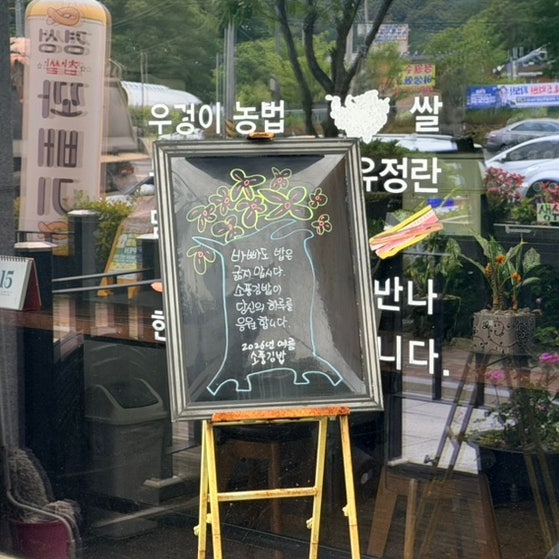 우렁이 농법
쌀
유정란
반나
니다.
바빠도 밥은
굶지 맙시다.
소풍김밥이
당신의 하루를
응원합니다.
2026년 여름
소풍김밥
찹쌀
꽈배기
15